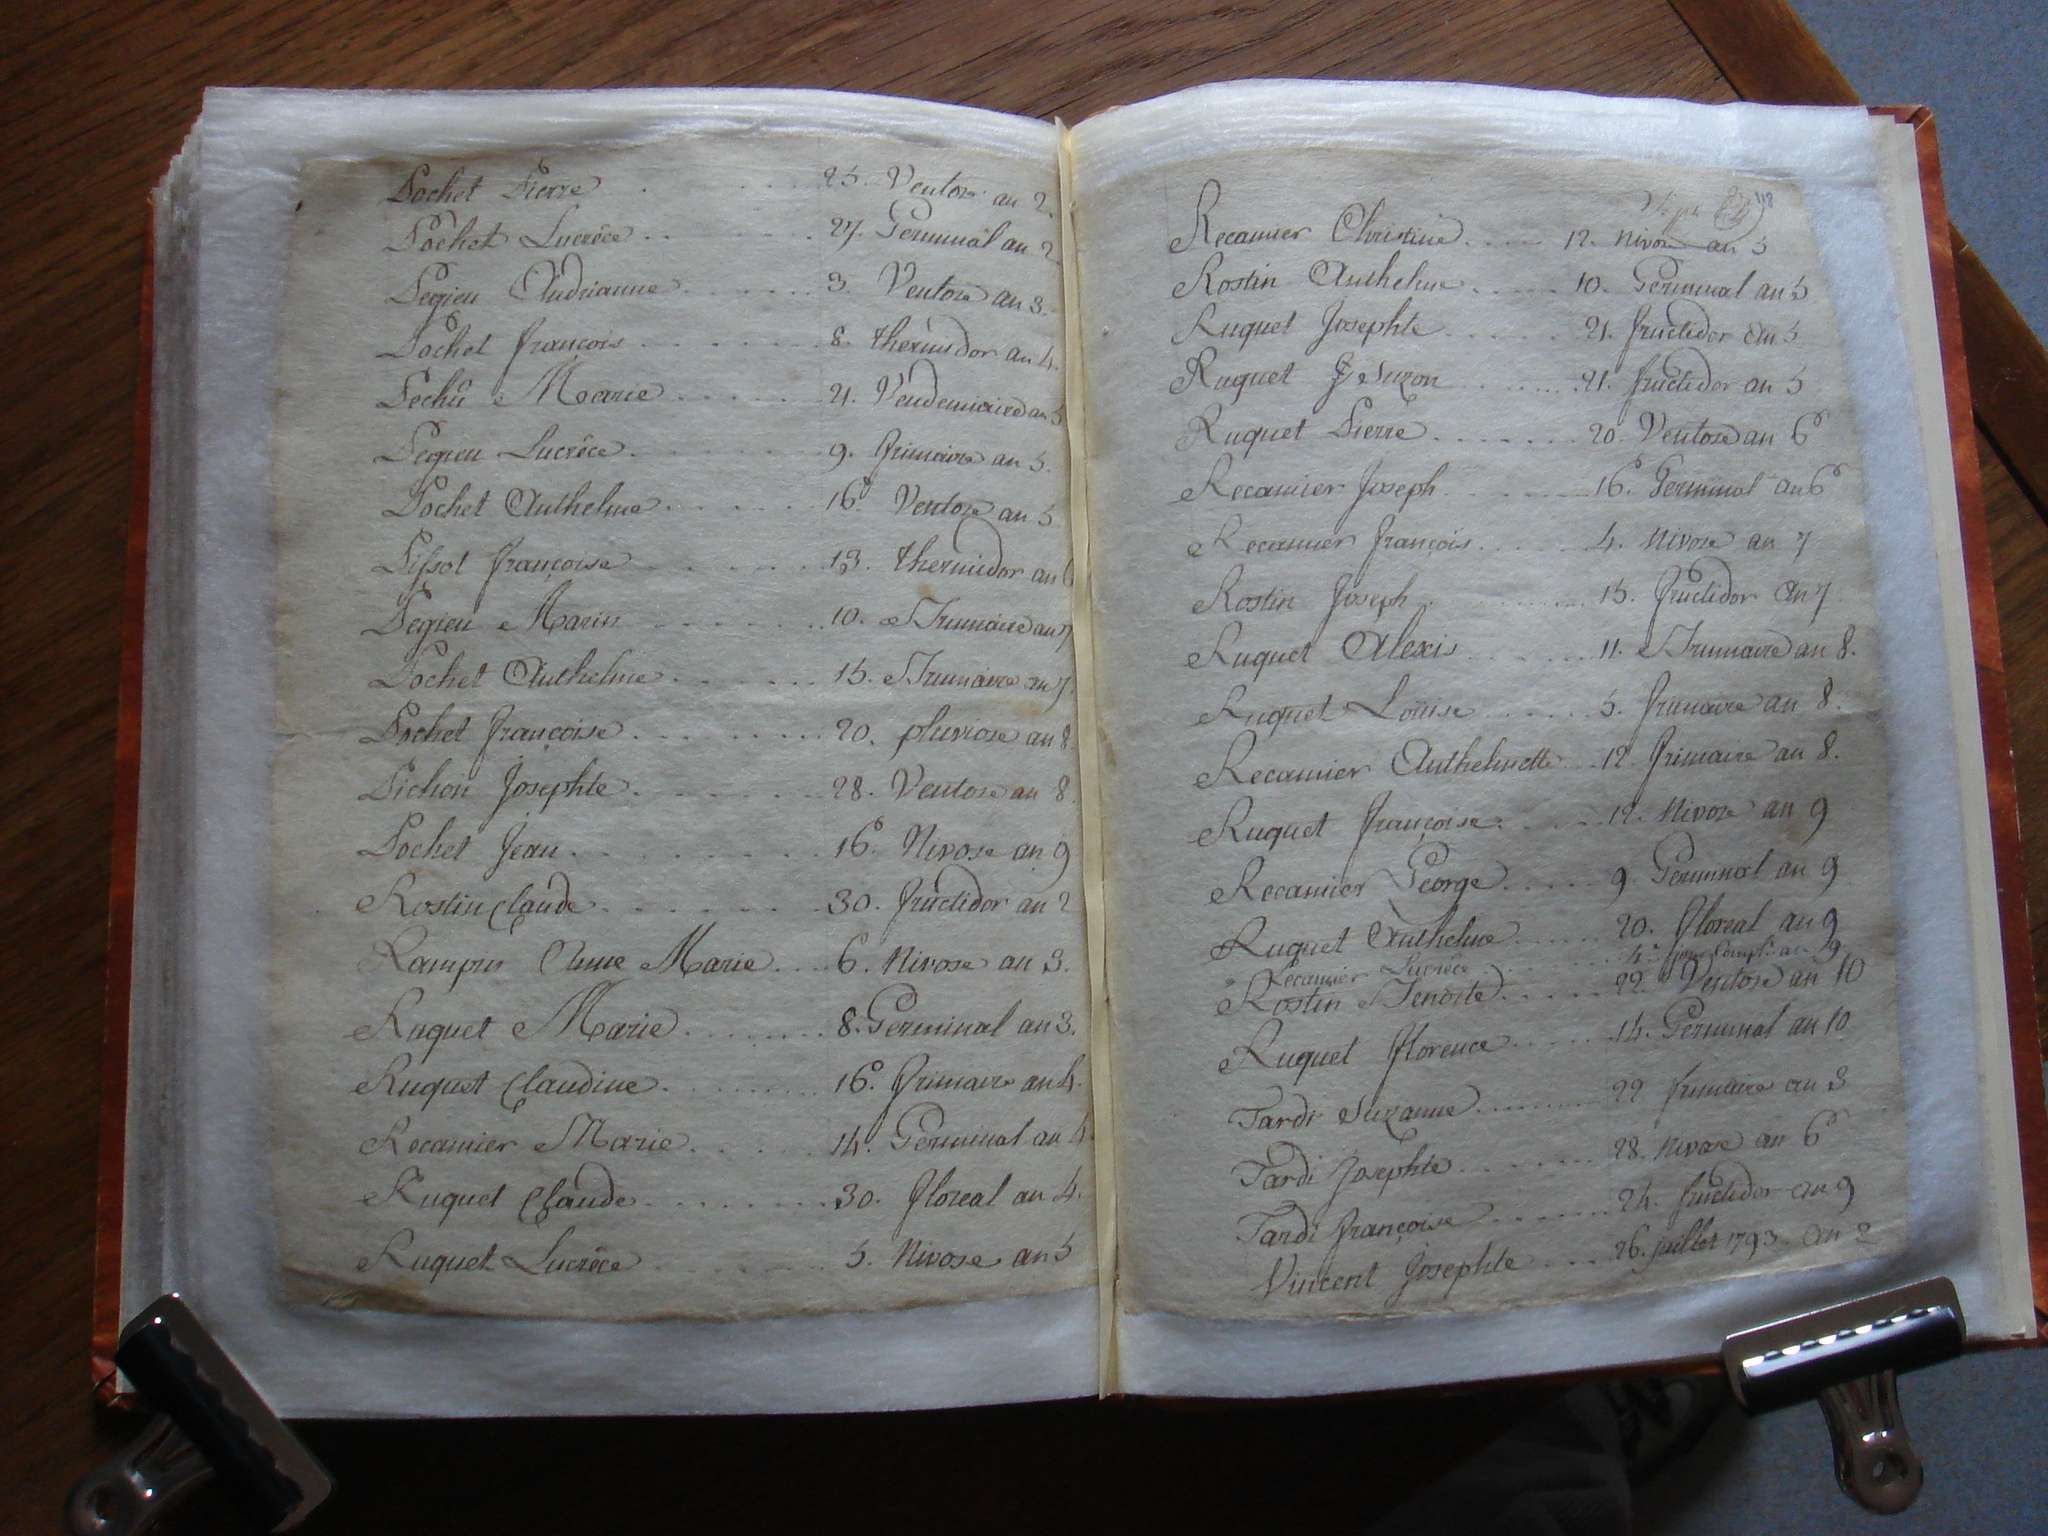 Pochet Pierre . . . . 25. Ventose an 2.
Pochet Lucrèce . . . . 27. Germinal an 2
Pegieu Andrianne . . . . 3. Ventose an 3.
Pochet françois . . . . 8. thermidor an 4.
Pechû Marie . . . . 21. Vendemiaire an 5
Pegieu Lucrèce . . . . 9. frimaire an 5.
Pochet Anthelme . . . . 16. Ventose an 5
Pissot françoise . . . . 13. thermidor an 6
Pegieu Marin . . . . 10. Brumaire an 7
Pochet Anthelme . . . . 15. Brumaire an 7.
Pochet françoise . . . . 20. pluviose an 8.
Pichon Josephte . . . . 28. Ventose an 8.
Pochet Jean . . . . 16. Nivose an 9
Rostin Claude . . . . 30. fructidor an 2
Rampin Anne Marie . . . . 6. Nivose an 3.
Ruquet Marie . . . . 8. Germinal an 3.
Ruquet Claudine . . . . 16. frimaire an 4.
Recamier Marie . . . . 14. Germinal an 4
Ruquet Claude . . . . 30. floreal an 4.
Ruquet Lucrèce . . . . 5. Nivose an 5
118
Recamier Christine . . . . 12. Nivose an 5
Rostin Anthelme . . . . 10. Germinal an 5
Ruquet Josephte . . . . 21. fructidor an 5
Ruquet Suzon . . . . 21. fructidor an 5
Ruquet Pierre . . . . 20. Ventose an 6
Recamier Joseph . . . . 16. Germinal an 6
Recamier françois . . . . 4. Nivose an 7
Rostin Joseph . . . . 15. fructidor an 7.
Ruquet Alexis . . . . 11. Brumaire an 8.
Ruquet Loüise . . . . 5. frimaire an 8.
Recamier Anthelmette . . 12. frimaire an 8.
Ruquet françoise . . . . 12. Nivose an 9
Recamier George . . . . 9. Germinal an 9
Ruquet Anthelme . . . . 20. floreal an 9
Recamier Lucrèce . . . . 4e jour Compl. an 9
Rostin Benoite . . . . 22. Ventose an 10
Ruquet florence . . . . 14. Germinal an 10
Tardi Suzanne . . . . 22 frimaire an 3
Tardi Josephte . . . . 28. Nivose an 6
Tardi françoise . . . . 24. fructidor an 9
Vincent Josephte . . . 26. juillet 1793. an 2